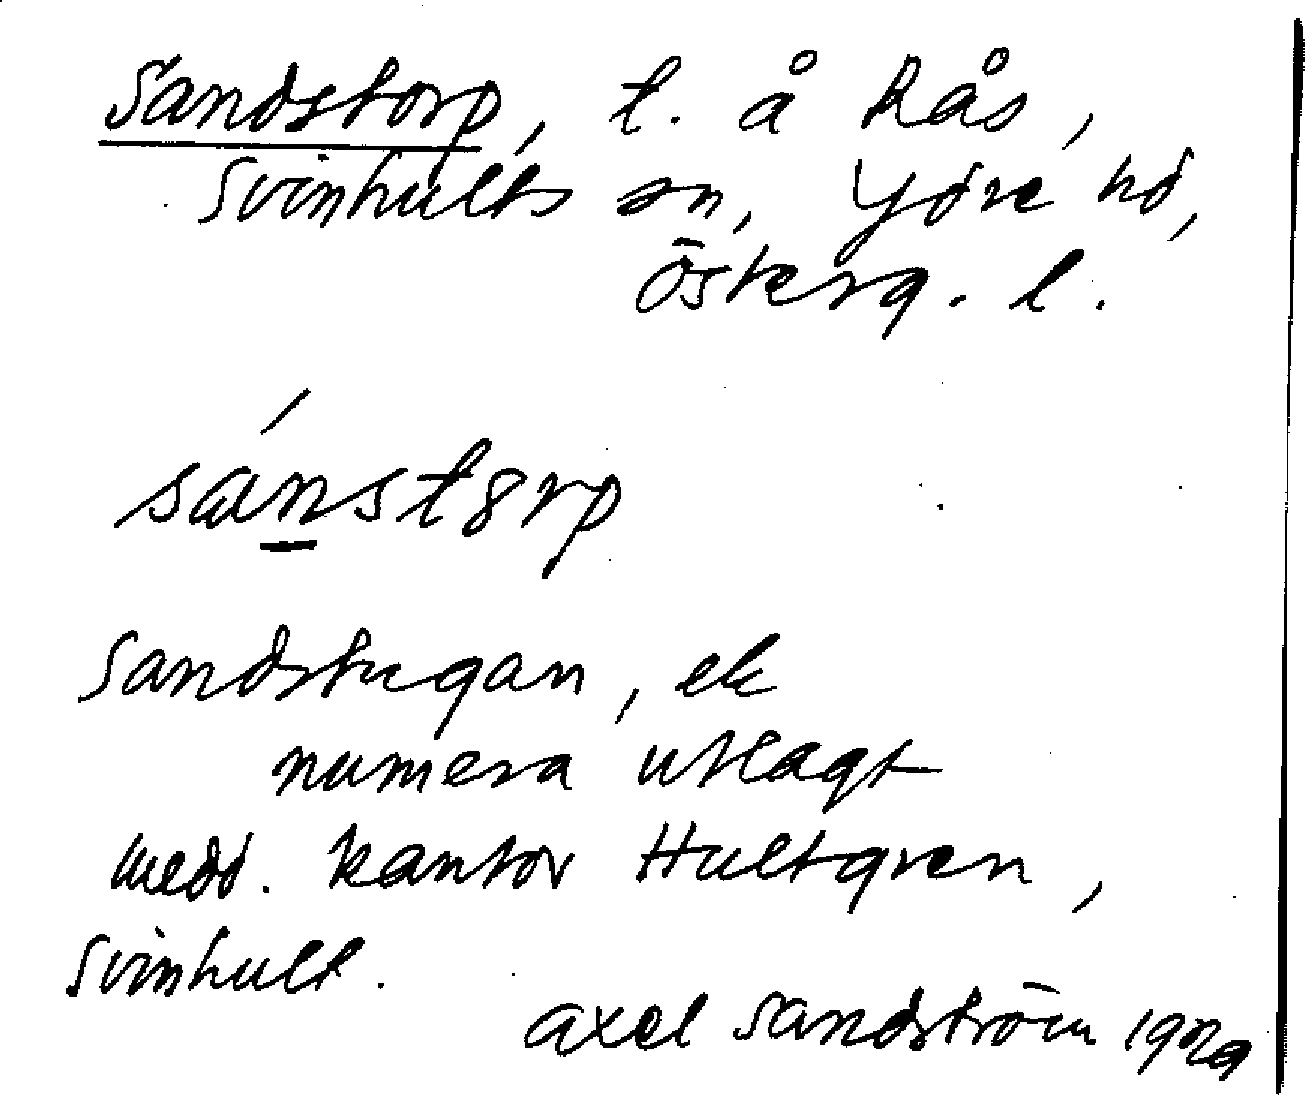 Sandstorp, t. å Rås,
Svinhults sn, Ydre hd,
Österg. l.
sánstȣrp
Sandstugan, ek
numera utlagt
medd. kantor Hultgren,
Svinhult.
Axel Sandström 1929